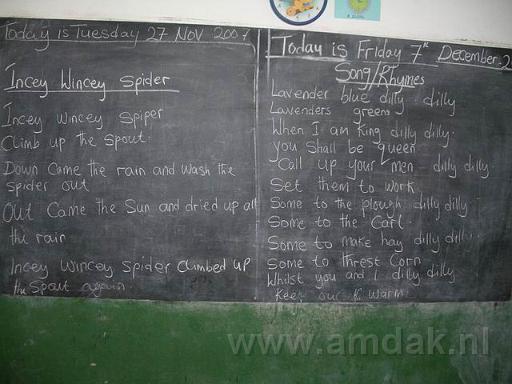 Today is Tuesday 27 Nov 2007
Incey Wincey Spider
Incey Wincey Spiper
Climb up the Spout.
Down Came the rain and wash the
spider out
Out Came the Sun and dried up all
the rain
Incey Wincey Spider Climbed up
the Spout again
Today is Friday 7th December. 2
Song/Rhymes
Lavender blue dilly dilly
Lavenders green
When I am King dilly dilly
you shall be queen
Call up your men dilly dilly
Set them to work
Some to the plough dilly dilly
Some to the Cart
Some to make hay dilly dilly
Some to threst Corn
Whilst you and I dilly dilly
Keep our warm
www.amdak.nl